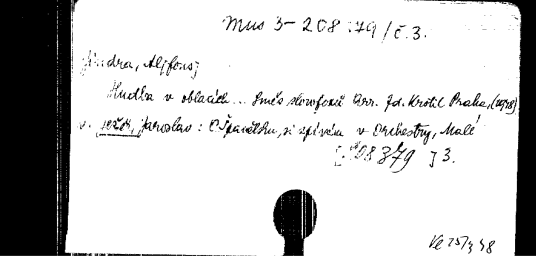 Mus 3-208 379/č.3.
Jindra, Alfons;
Hudba v oblacích... Směs slowfoxů Arr. Jd. Krotil Praha, (1948)
v. Ježek, Jaroslav: O Španělsku si zpívám v Orchestry, Malé
208379 3.
Ve 25/3 48